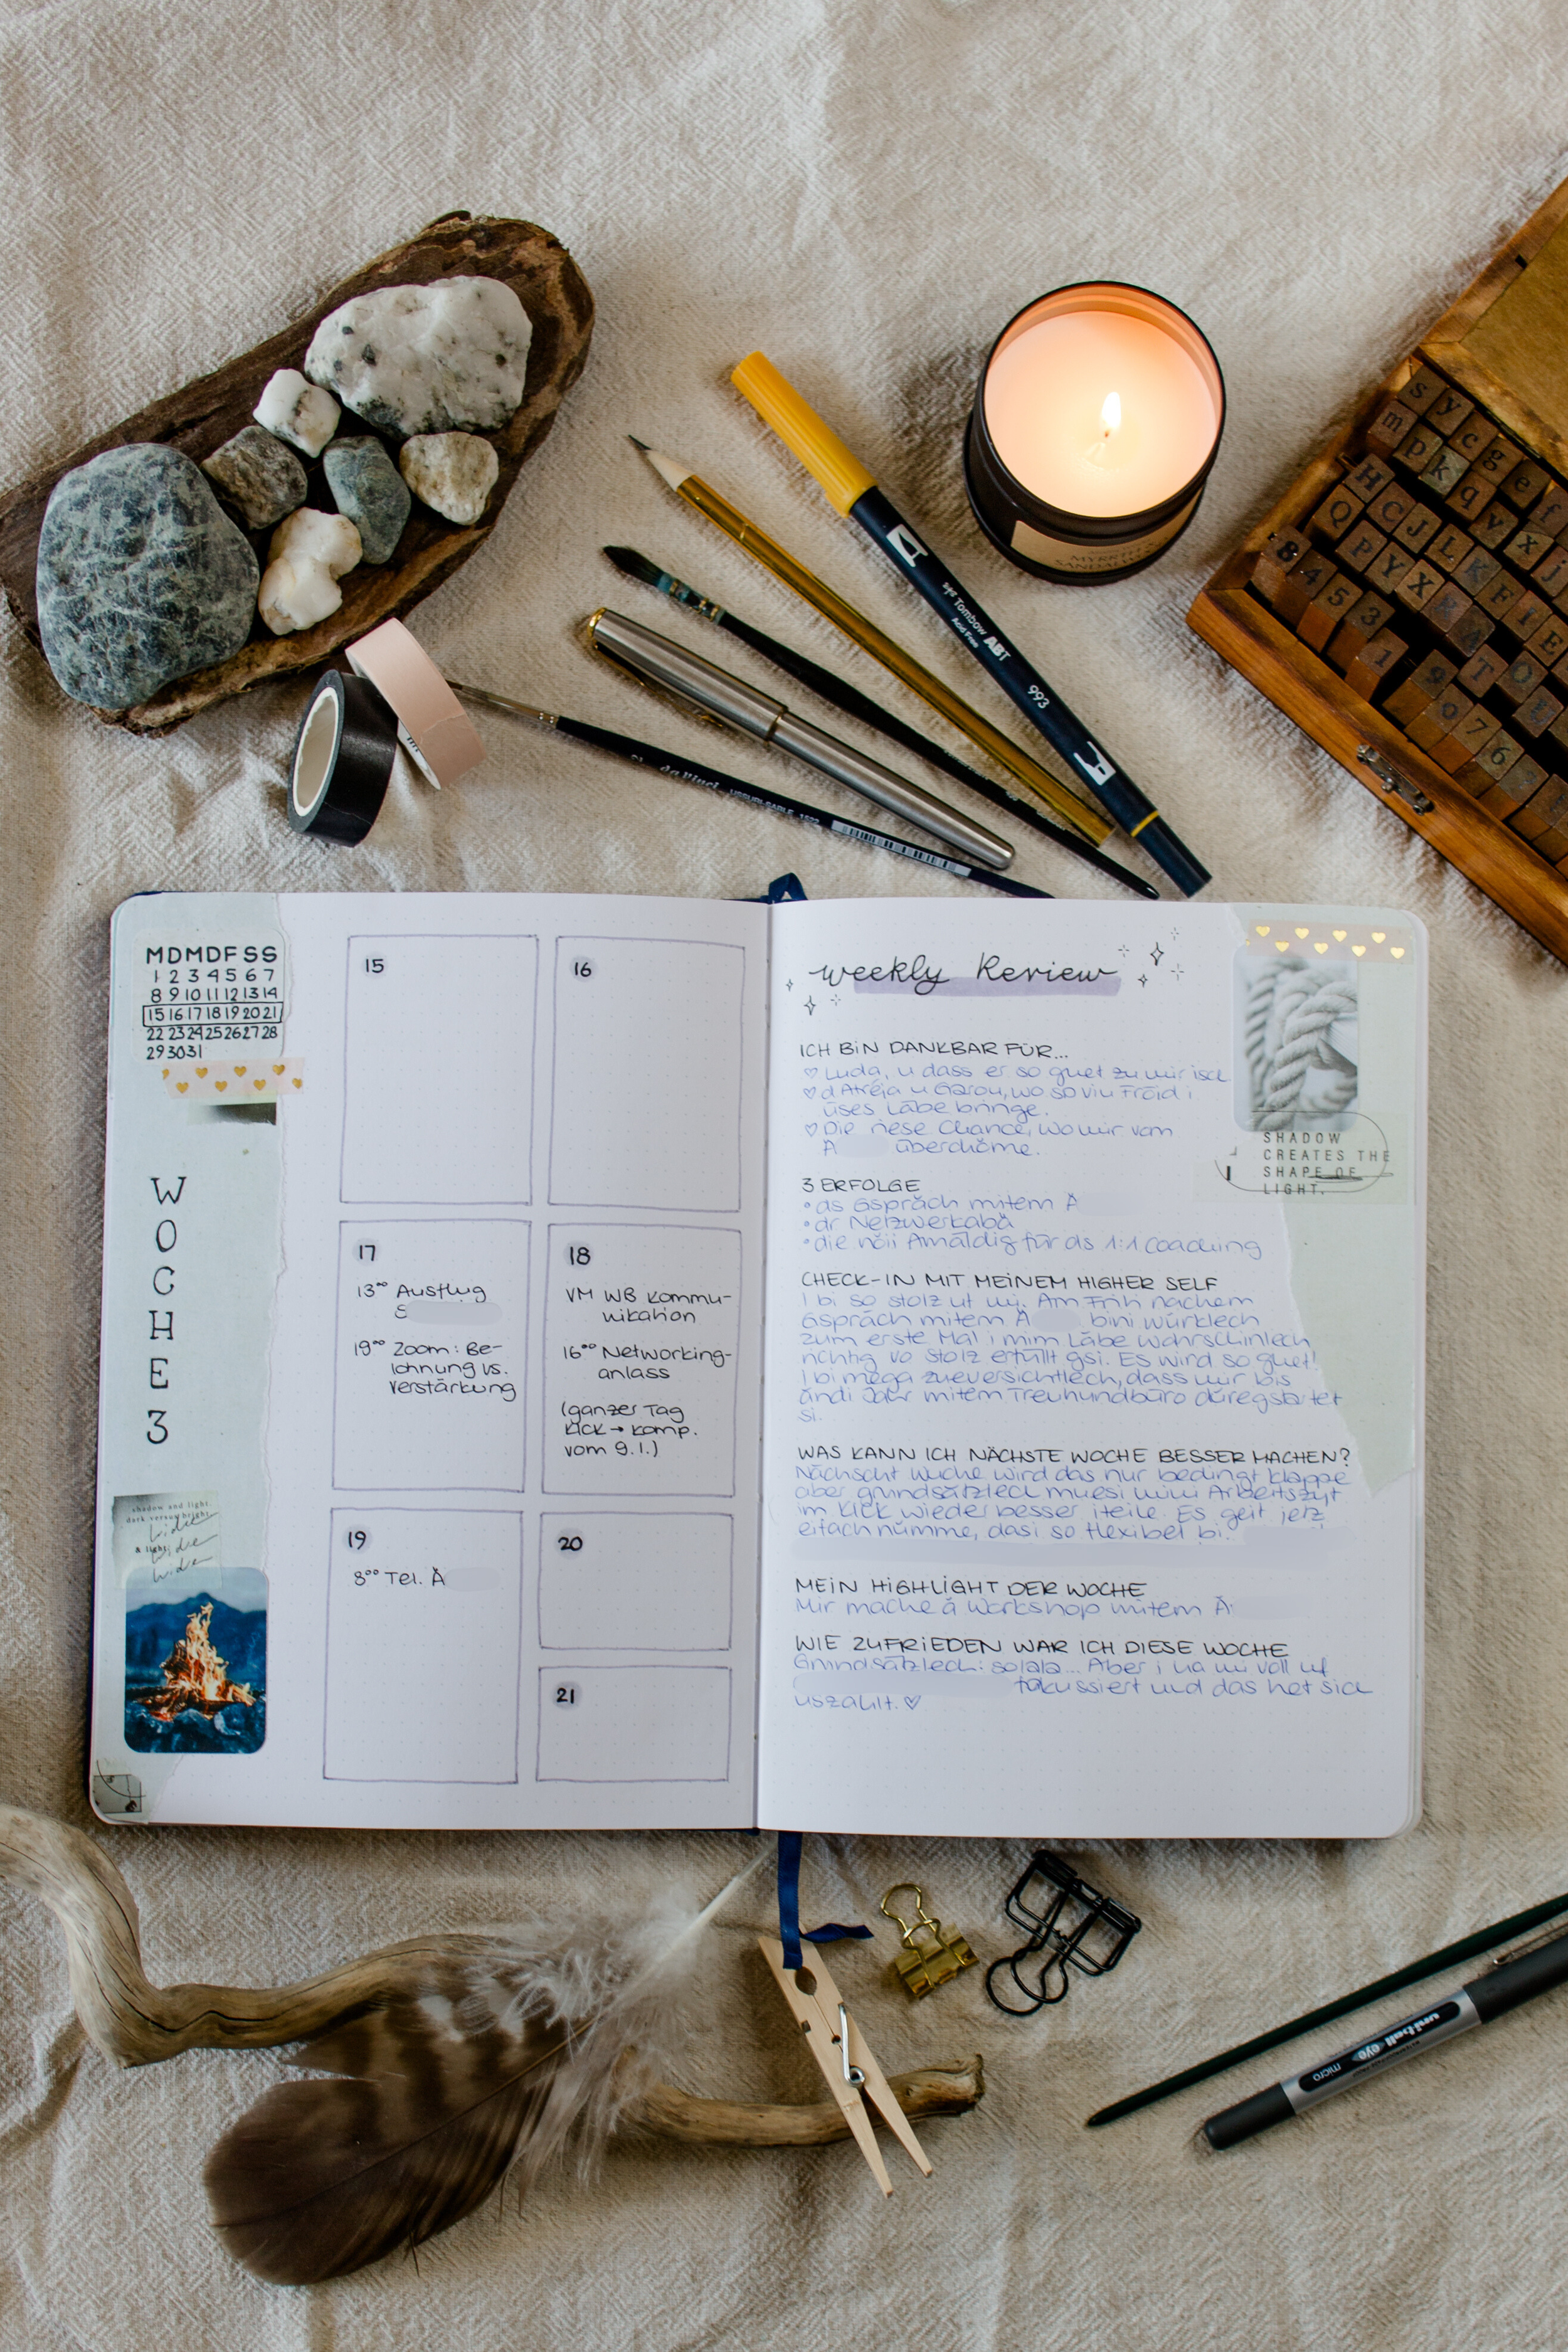 MYRRH
s y c g e f
m p k q v x j
H C J L K F I E
Q P Y X T O
8 4 5 3 1 9 0 7 6
Tombow ABT
Acid Free
993
da Vinci
MDMDFSS
1 2 3 4 5 6 7
8 9 10 11 12 13 14
15 16 17 18 19 20 21
22 23 24 25 26 27 28
29 30 31
WOCHE 3
shadow and light.
dark versus bright.
a light
15
16
17
13⁰⁰ Ausflug
S
19⁰⁰ Zoom: Be-
lohnung vs.
Verstärkung
18
VM WB Kommu-
nikation
16⁰⁰ Networking-
anlass
(ganzer Tag
KICK → komp.
vom 9.1.)
19
8⁰⁰ Tel. Ä
20
21
weekly Review
ICH BIN DANKBAR FÜR...
♡ Luda, u dass er so guet zu mir isch
♡ d Atréja u Garou, wo so viu Fröid i
üses Läbe bringe.
♡ Die riese Chance, wo mir vom
A überchöme.
3 ERFOLGE
• ds Gspräch mitem Ä
• dr Netzwerkabä
• die nöii Amäldig für ds 1:1 Coaching
CHECK-IN MIT MEINEM HIGHER SELF
I bi so stolz uf mi. Am Früh nachem
Gspräch mitem A bini würklech
zum erste Mal i mim Läbe wahrschinlech
richtig vo Stolz erfüllt gsi. Es wird so guet!
I bi mega zueversichtlech, dass mir bis
ändi Jahr mitem Treuhandbüro düregstartet
si.
WAS KANN ICH NÄCHSTE WOCHE BESSER MACHEN?
Nächscht Wuche wird das nur bedingt klappe
aber grundsätzlech muesi mini Arbeitszyt
im KICK wieder besser iteile. Es geit jetz
eifach nümme, dasi so flexibel bi.
MEIN HIGHLIGHT DER WOCHE
Mir mache ä Workshop mitem Ä
WIE ZUFRIEDEN WAR ICH DIESE WOCHE
Grundsätzlech: solala... Aber i ha mi voll uf
fokussiert und das het sich
uszahlt. ♡
SHADOW
CREATES THE
SHAPE OF
LIGHT.
uni-ball eye
micro